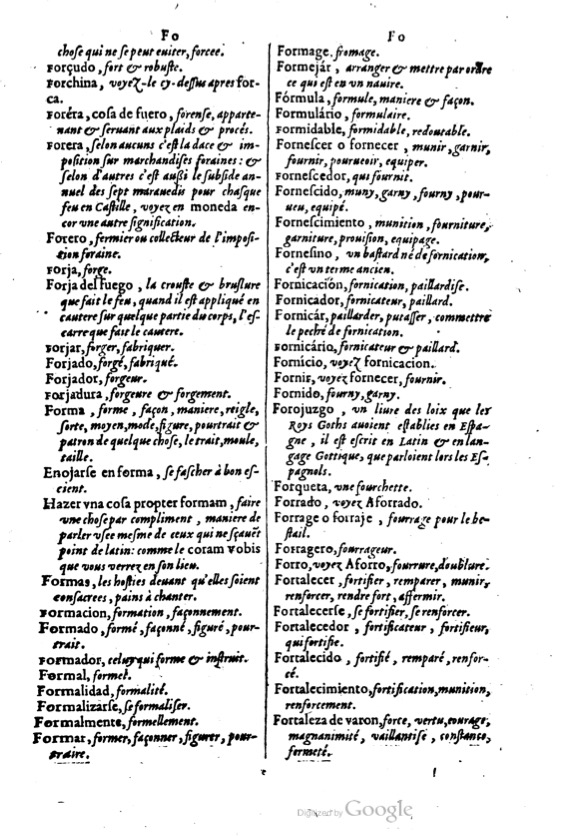 Fo
choſe qui ne ſe peut euiter, forcee.
Forçudo, fort & robuſte.
Forchina, voyez-le cy-deſſus apres for-
ca.
Foréra, coſa de fuero, forenſe, apparte-
nant & ſeruant aux plaids & procés.
Forera, ſelon aucuns c'eſt la dace & im-
poſition ſur marchandiſes foraines: &
ſelon d'autres c'eſt außi le ſubſide an-
nuel des ſept marauedis pour chaſque
feu en Caſtille, voyez en moneda en-
cor vne autre ſignification.
Forero, fermier ou collecteur de l'impoſi-
tion foraine.
Forja, forge.
Forja del fuego, la crouſte & bruſlure
que fait le feu, quand il eſt appliqué en
cautere ſur quelque partie du corps, l'eſ-
carre que fait le cautere.
Forjar, forger, fabriquer.
Forjado, forgé, fabriqué.
Forjador, forgeur.
Forjadura, forgeure & forgement.
Forma, forme, façon, maniere, reigle,
ſorte, moyen, mode, figure, pourtrait &
patron de quelque choſe, le trait, moule,
taille.
Enojarſe en forma, ſe faſcher à bon eſ-
cient.
Hazer vna coſa propter formam, faire
vne choſe par compliment, maniere de
parler vſee meſme de ceux qui ne ſçauẽt
point de latin: comme le coram vobis
que vous verrez en ſon lieu.
Formas, les hoſties deuant qu'elles ſoient
conſacrees, pains à chanter.
Formacion, formation, façonnement.
Formado, formé, façonné, figuré, pour-
trait.
Formador, celuy qui forme & inſtruit.
Formal, formel.
Formalidad, formalité.
Formalizarſe, ſe formaliſer.
Formalmente, formellement.
Formar, former, façonner, figurer, pour-
traire.
Fo
Formage, fromage.
Formejár, arranger & mettre par ordre
ce qui eſt en vn nauire.
Fórmula, formule, maniere & façon.
Formulário, formulaire.
Formidable, formidable, redoutable.
Forneſcer o fornecer, munir, garnir,
fournir, pourueoir, equiper.
Forneſcedor, qui fournit.
Forneſcido, muny, garny, fourny, pour-
ueu, equipé.
Forneſcimiento, munition, fourniture,
garniture, prouiſion, equipage.
Forneſino, vn baſtard né de fornication,
c'eſt vn terme ancien.
Fornicación, fornication, paillardiſe.
Fornicador, fornicateur, paillard.
Fornicár, paillarder, putaſſer, commettre
le peché de fornication.
Fornicário, fornicateur & paillard.
Fornicio, voyez fornicacion.
Fornir, voyez fornecer, fournir.
Fornido, fourny, garny.
Forojuzgo, vn liure des loix que les
Roys Goths auoient eſtablies en Eſpa-
gne, il eſt eſcrit en Latin & en lan-
gage Gottique, que parloient lors les Eſ-
pagnols.
Forqueta, vne fourchette.
Forrado, voyez Aforrado.
Forrage o forraje, fourrage pour le be-
ſtail.
Forragero, fourrageur.
Forro, voyez Aforro, fourrure, doublure.
Fortalecer, fortifier, remparer, munir,
renforcer, rendre fort, affermir.
Fortalecerſe, ſe fortifier, ſe renforcer.
Fortalecedor, fortificateur, fortifieur,
qui fortifie.
Fortalecido, fortifié, remparé, renfor-
cé.
Fortalecimiento, fortification, munition,
renforcement.
Fortaleza de varon, force, vertu, courage,
magnanimité, vaillantiſe, conſtance,
fermeté.
Digitized by Google